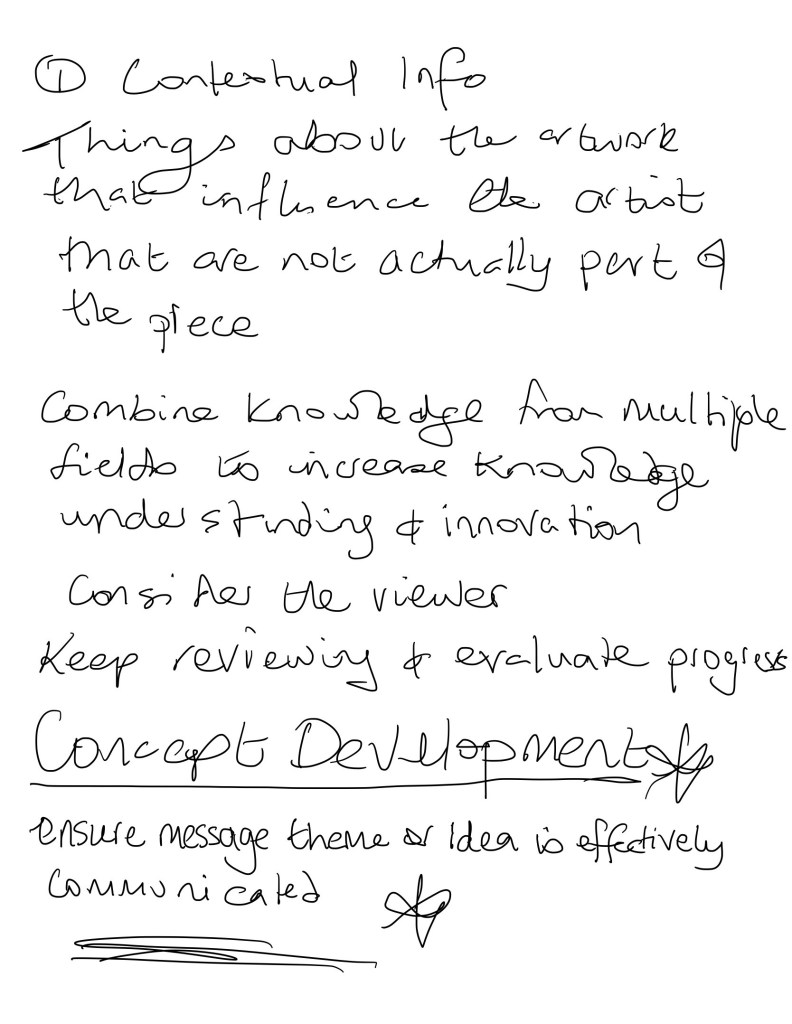 ① Contextual Info
Things about the artwork
that influence the artist
that are not actually part of
the piece
Combine knowledge from multiple
fields to increase knowledge
understanding & innovation
Consider the viewer
Keep reviewing & evaluate progress
Concept Development
ensure message theme or Idea is effectively
communicated